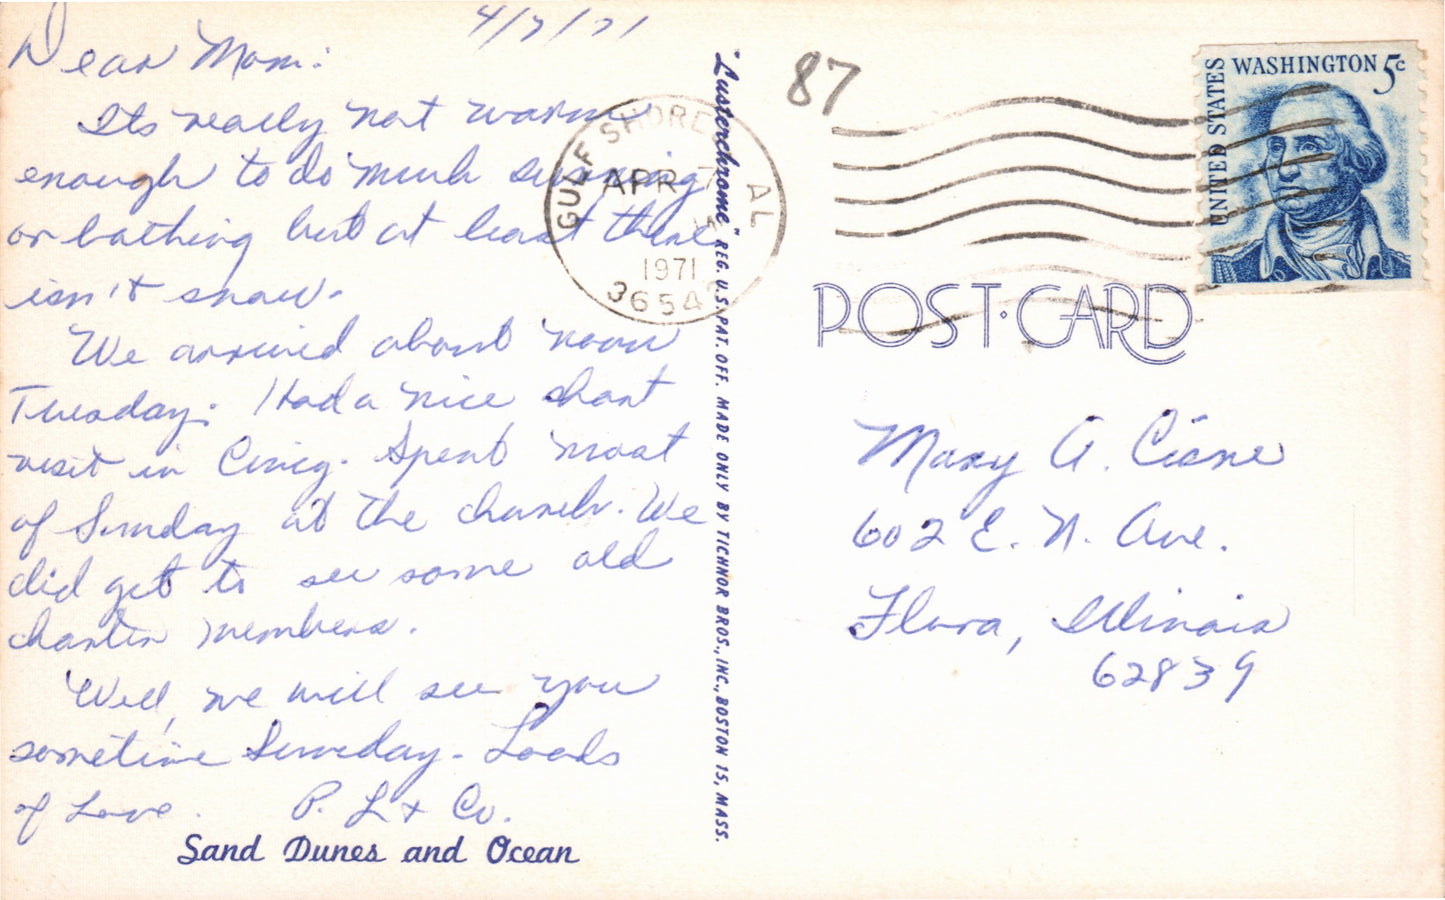 4/7/71
Dear Mom:
Its really not warm
enough to do much
or bathing but at least there
isn't snow.
We arrived about noon
Tuesday. Had a nice short
visit in Cinci. Spent most
of Sunday at the church. We
did get to see some old
charter members.
Well, we will see you
sometime Sunday. Loads
of Love. P. L + Co.
Sand Dunes and Ocean
"Lusterchrome" REG. U.S. PAT. OFF. MADE ONLY BY TICHNOR BROS., INC., BOSTON 15, MASS.
GULF SHORES AL
APR 7
1971
36542
87
UNITED STATES
WASHINGTON 5c
POST·CARD
Mary A. Cisne
602 E. N. Ave.
Flora, Illinois
62839